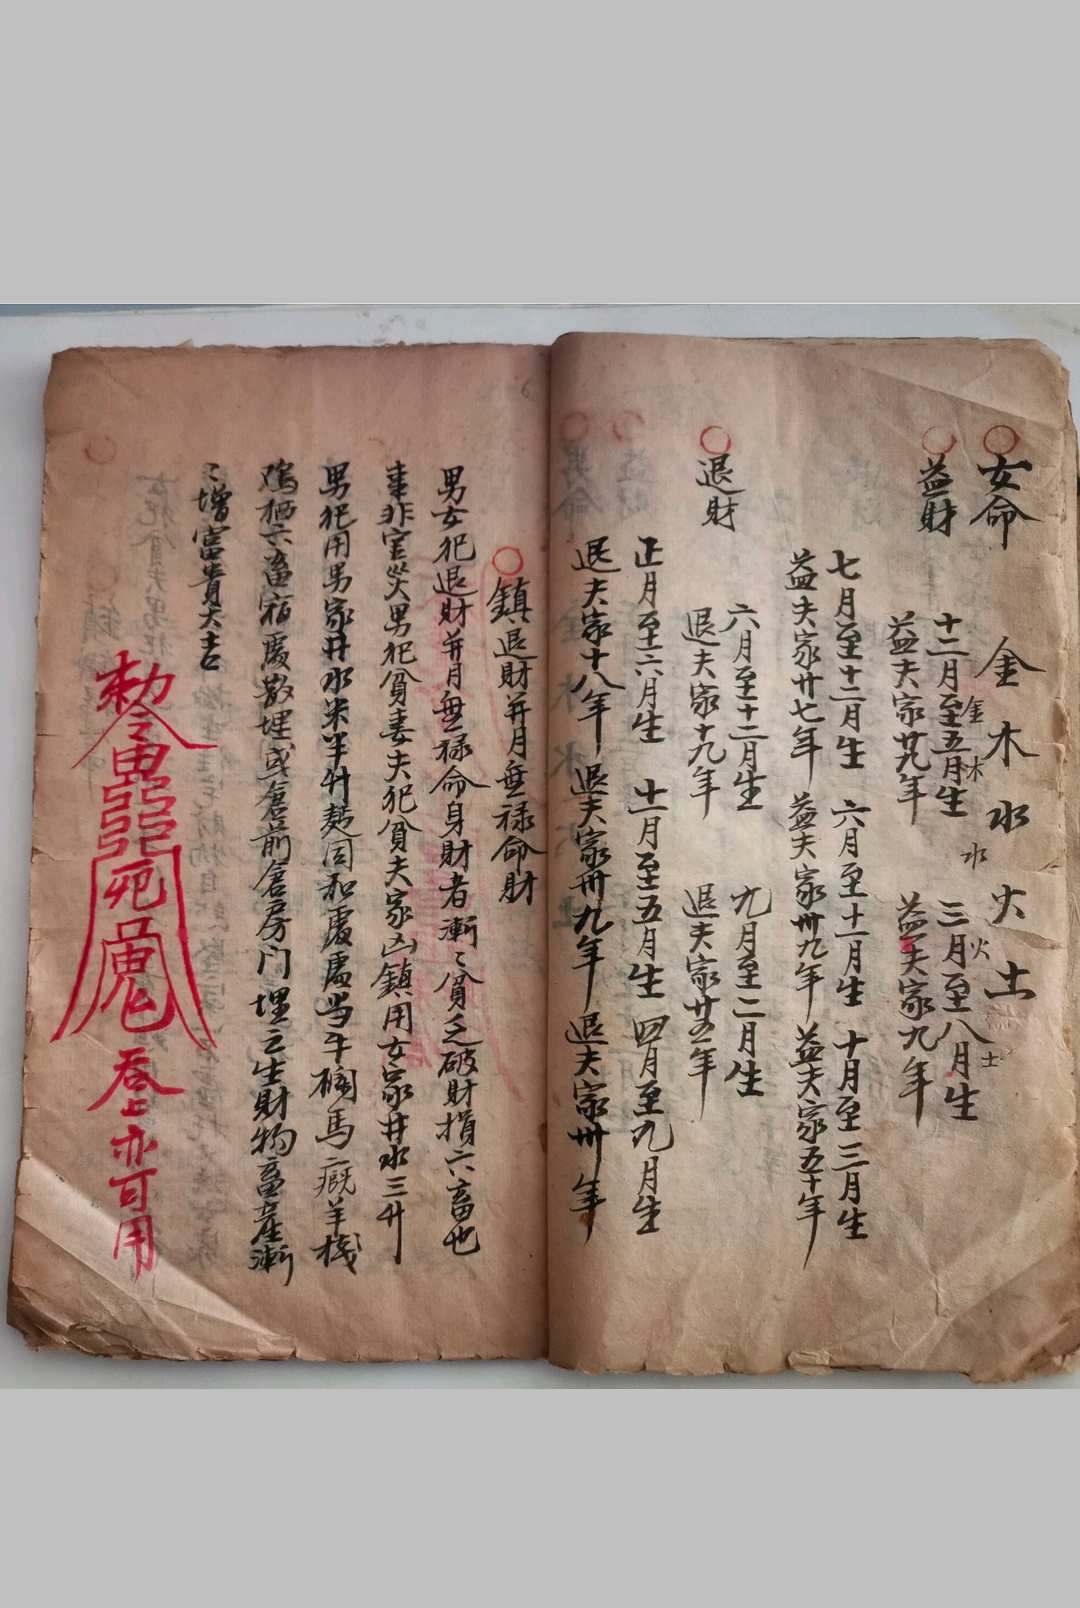 女命 金木水火土
益財
金木 水 火 土
十二月至五月生 三月至八月生
益夫家廿九年 益夫家九年
七月至十二月生 六月至十一月生 十月至三月生
益夫家廿七年 益夫家卅九年 益夫家五十年
退財
六月至十二月生 九月至二月生
退夫家十九年 退夫家廿五年
正月至六月生 十一月至五月生 四月至九月生
退夫家十八年 退夫家卅九年 退夫家卅年
鎮退財并月無祿命財
男女犯退財并月無祿命身財者漸〻貧乏破財損六畜也
事非官災男犯貧妻夫犯貧夫家凶鎮用女家井水三升
男犯用男家井水米半升麸同和處處当牛欄馬廄羊棧
鸡栖六畜宿處散埋或倉前倉房門埋之生財物畜產漸
〻增富貴大吉
勅令
鬼
吞上亦可用